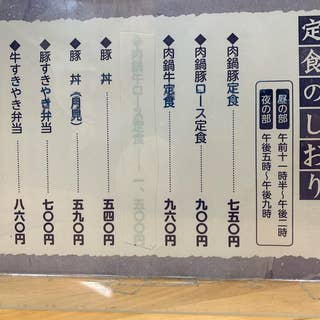 定食のしおり
昼の部 午前十一時半〜午後二時
夜の部 午後五時〜午後九時
◆肉鍋豚定食……七五〇円
◆肉鍋豚ロース定食……九〇〇円
◆肉鍋牛定食……九六〇円
◆肉鍋牛ロース定食……一、五〇〇円
◆豚 丼……五四〇円
◆豚 丼(月見)……五九〇円
◆豚すきやき弁当……七〇〇円
◆牛すきやき弁当……八六〇円